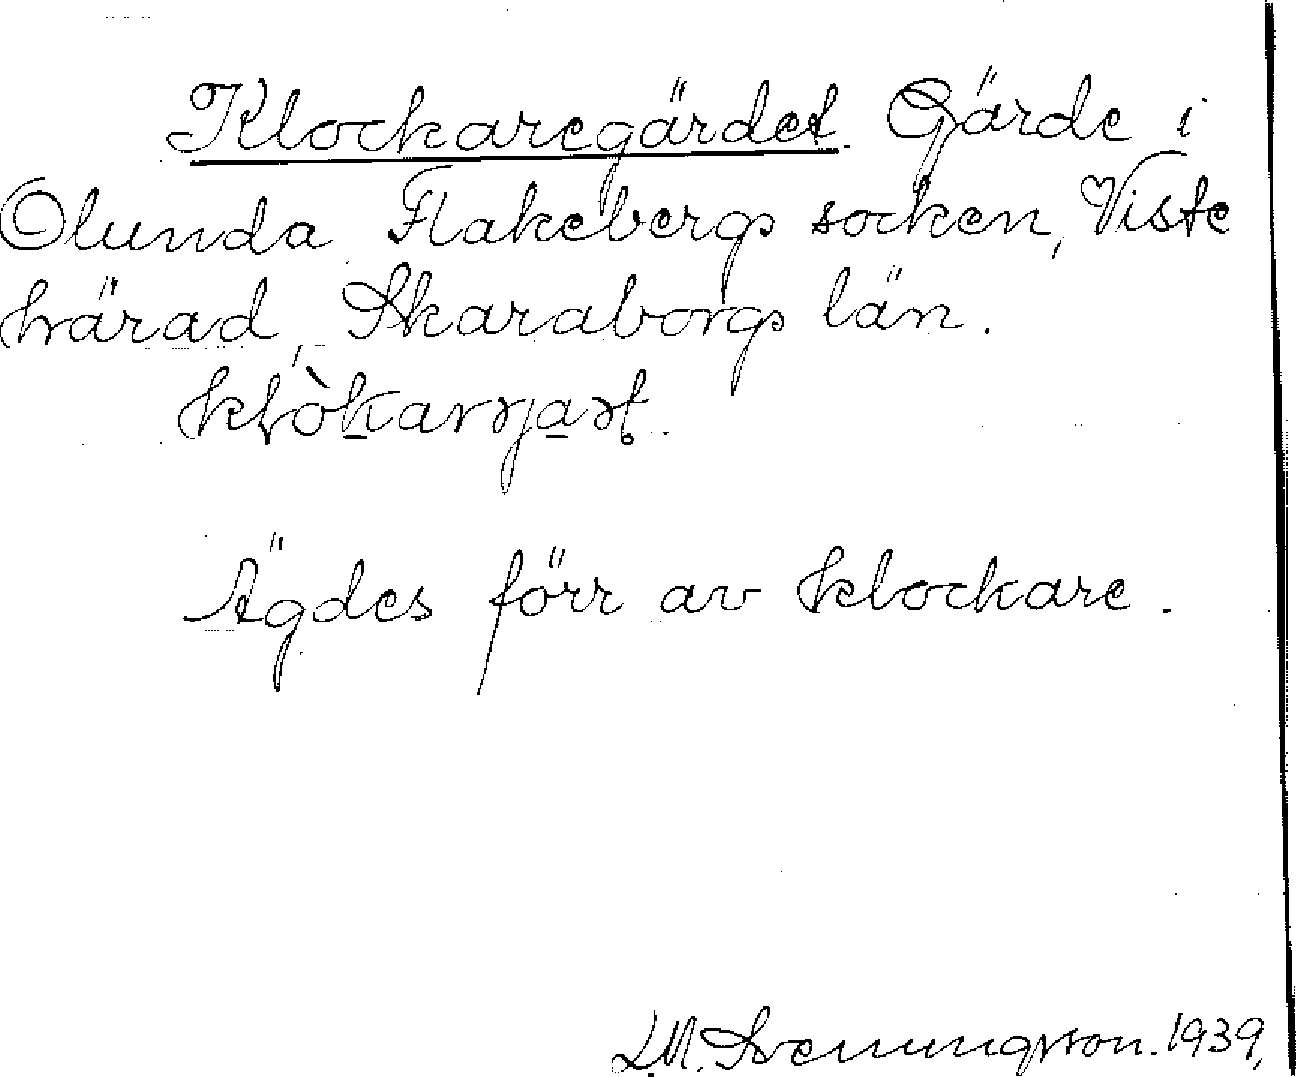 Klockaregärdet. Gärde i
Olunda Flakebergs socken, Viste
härad, Skaraborgs län.

Ägdes förr av klockare.
L.M. Svenungsson. 1939,